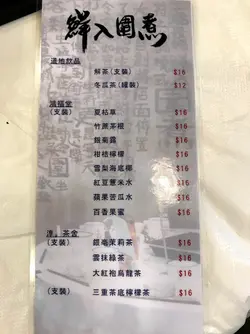 鮮入圍煮
道地飲品
解茶(支裝) $16
冬瓜茶(罐裝) $12
鴻福堂
(支裝) 夏枯草 $16
竹蔗茅根 $16
$16
柑桔檸檬 $16
雪梨海底椰 $16
紅豆薏米水 $16
蘋果苦瓜水 $16
百香果蜜 $16
淳。茶舍
(支裝) 銀毫茉莉茶 $16
雲抹綠茶 $16
大紅袍烏龍茶 $16
(支裝) 三重茶底檸檬茶 $16